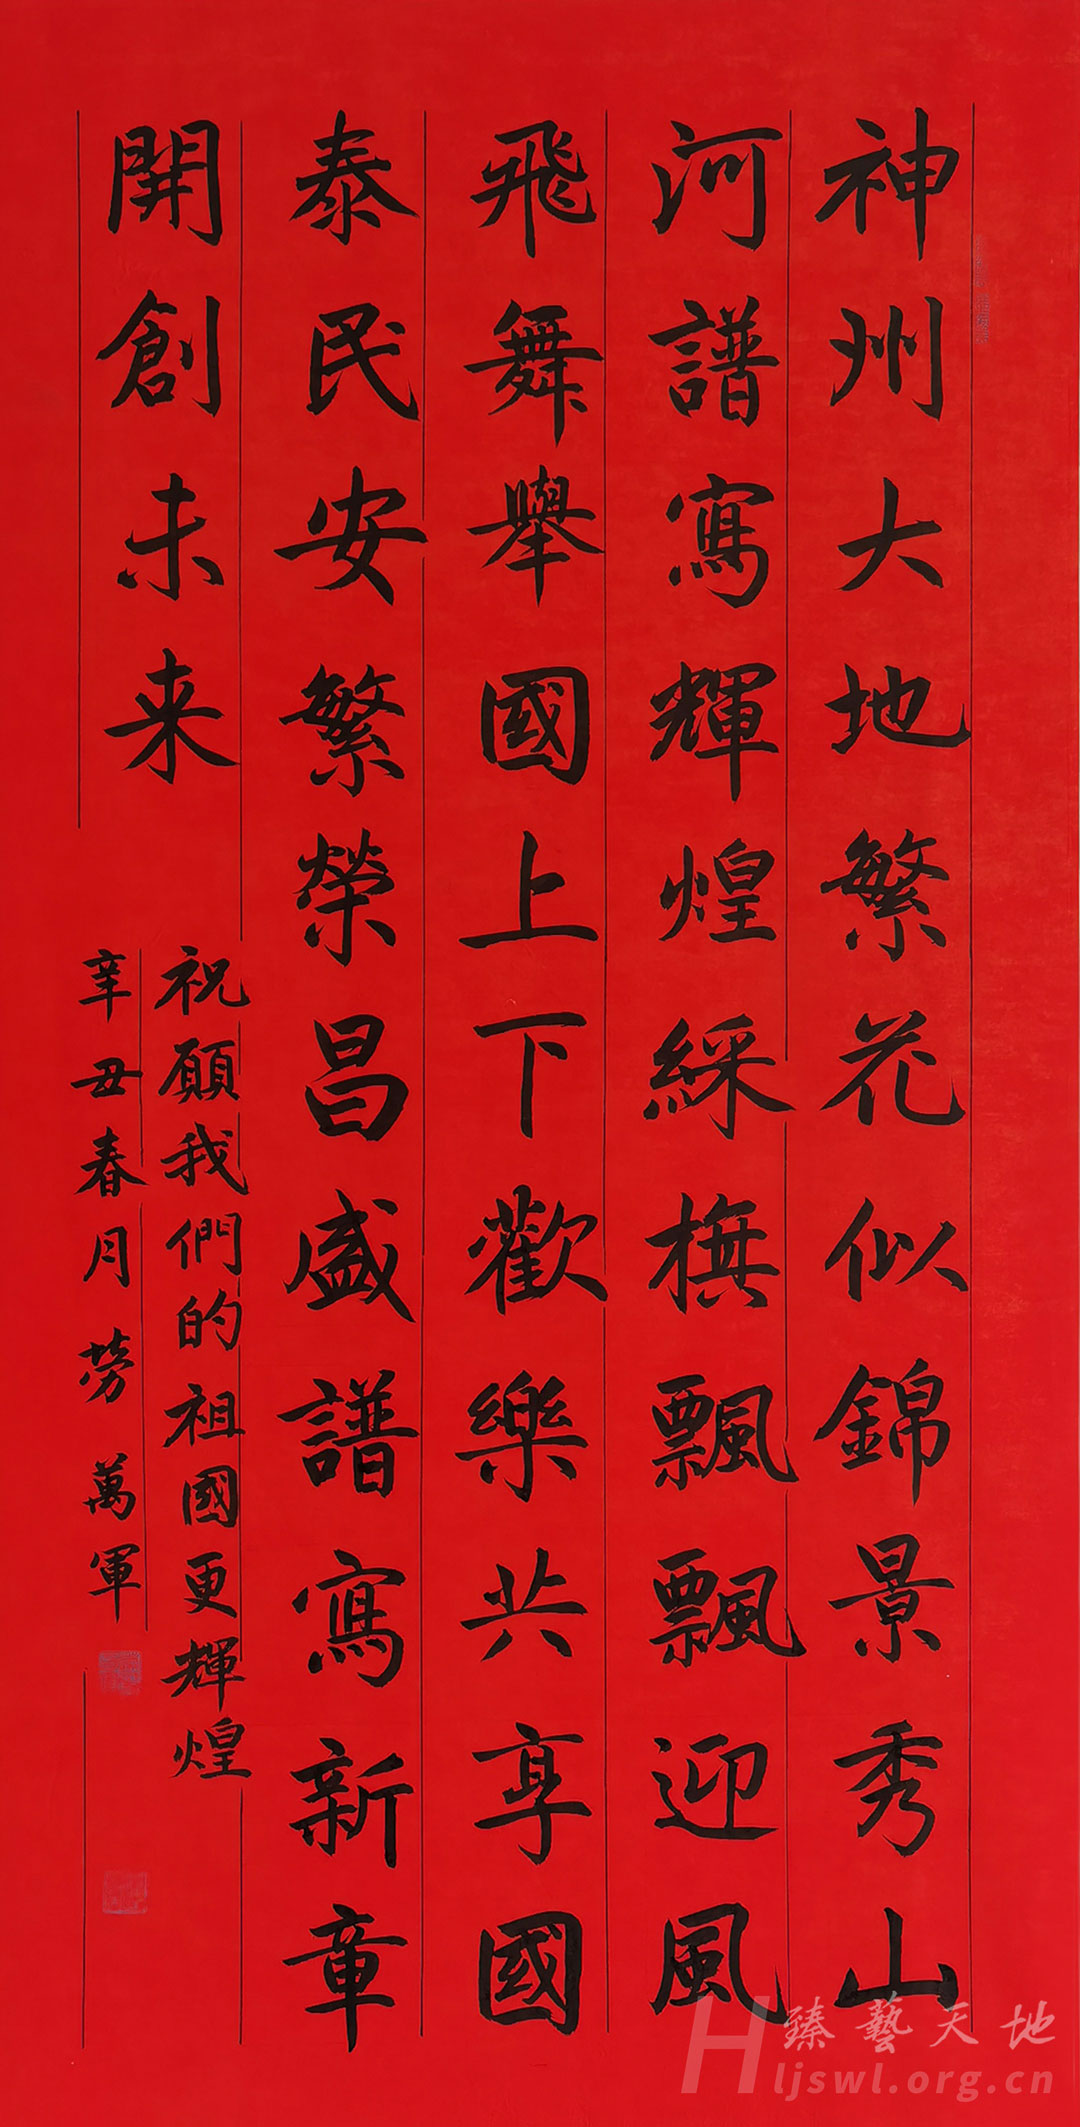 神州大地繁花似錦景秀山
河譜寫輝煌綵橅飄飄迎風
飛舞舉國上下歡樂共享國
泰民安繁榮昌盛譜寫新章
開創未来
祝願我們的祖國更輝煌
辛丑春月劳萬軍
H 臻藝天地
ljswl.org.cn